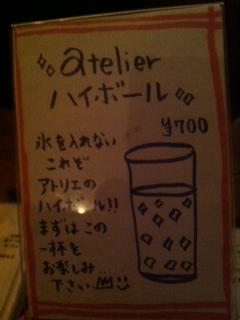 atelier
ハイボール
¥700
氷を入れない
これぞ
アトリエの
ハイボール!!
まずはこの
一杯を
お楽しみ
下さい